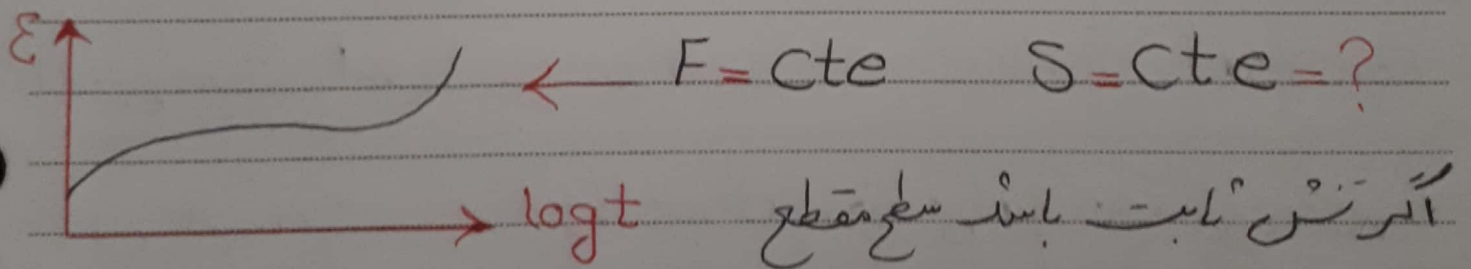 ε
F = cte S = cte = ?
log t
اگر تنش ثابت باشد سطح مقطع